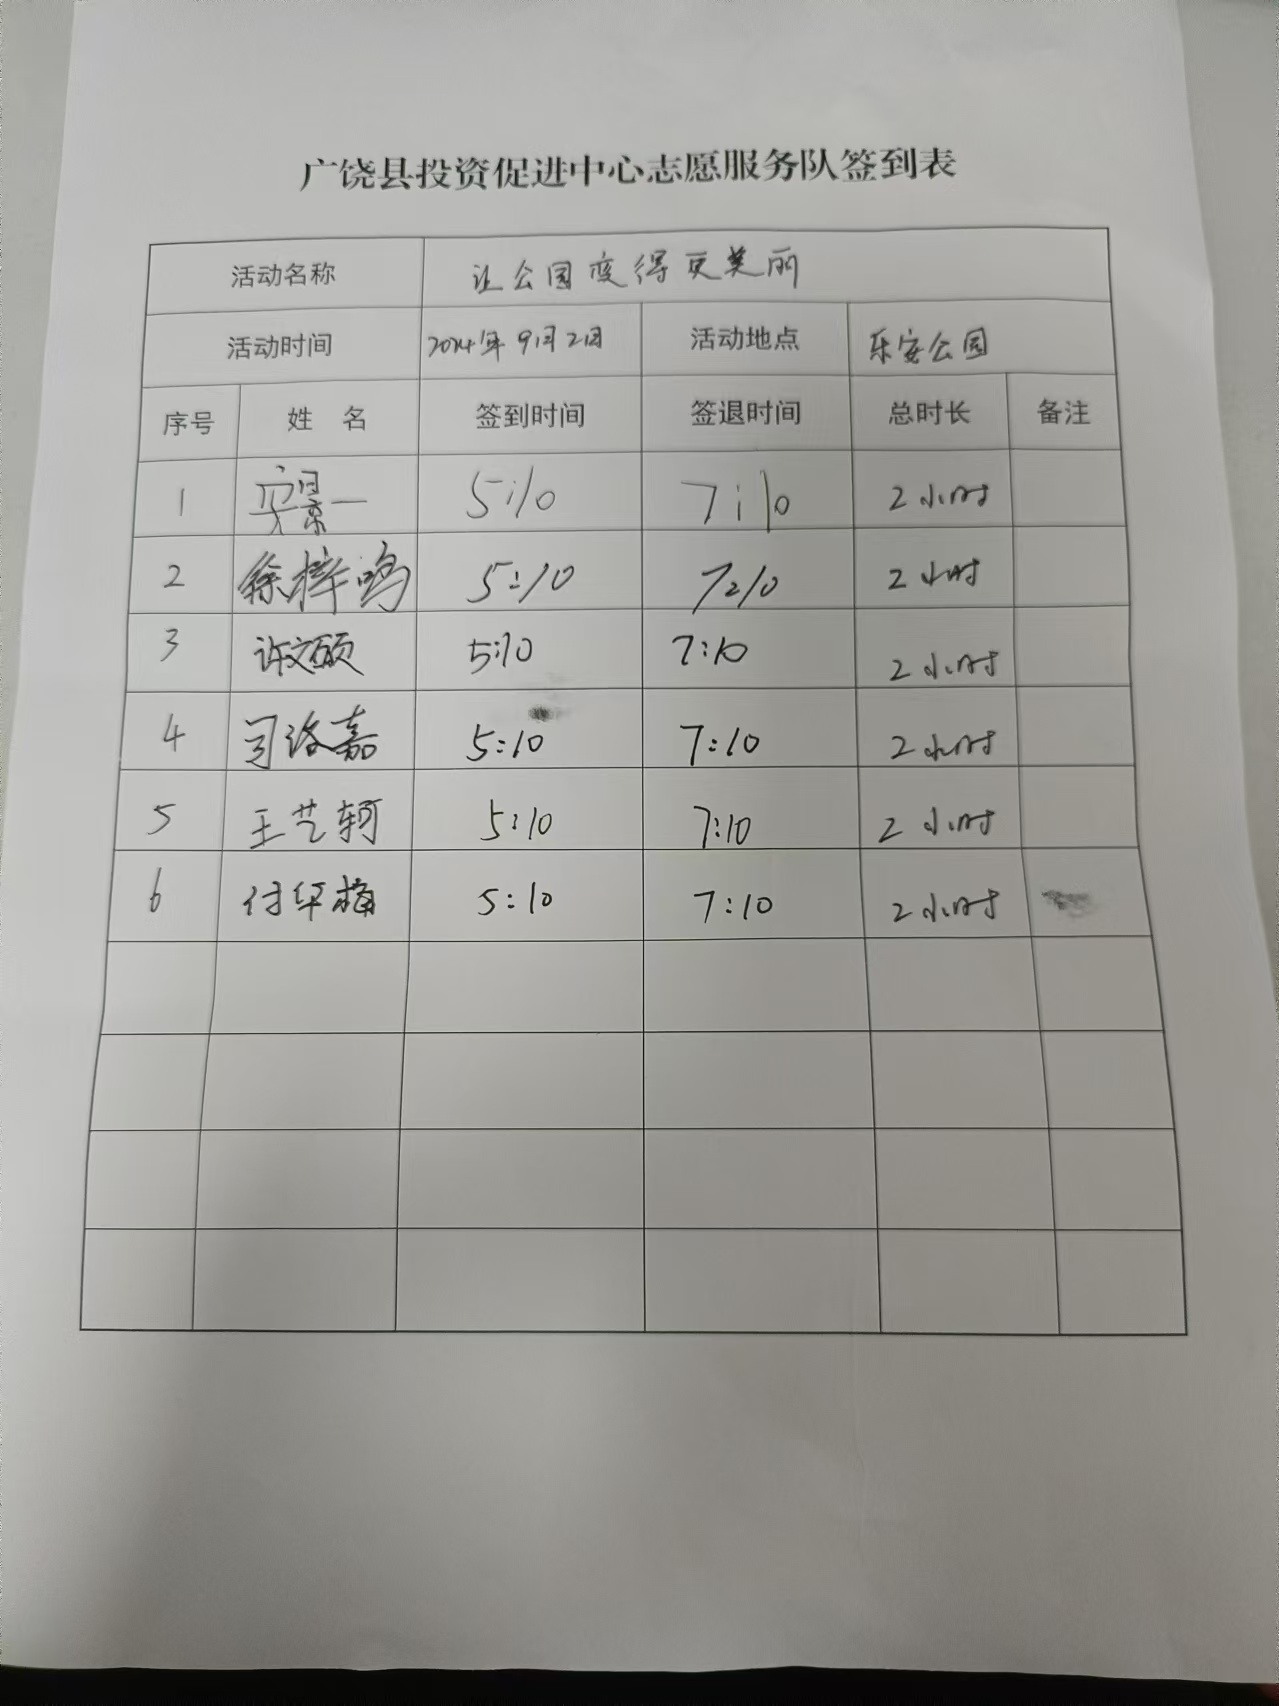 广饶县投资促进中心志愿服务队签到表
活动名称 让公园变得更美丽
活动时间 2024年9月2日 活动地点 乐安公园
序号 姓 名 签到时间 签退时间 总时长 备注
1 景一 5:10 7:10 2小时
2 徐梓鸣 5:10 7:10 2小时
3 许文硕 5:10 7:10 2小时
4 司洺嘉 5:10 7:10 2小时
5 王艺轲 5:10 7:10 2小时
6 付华梅 5:10 7:10 2小时